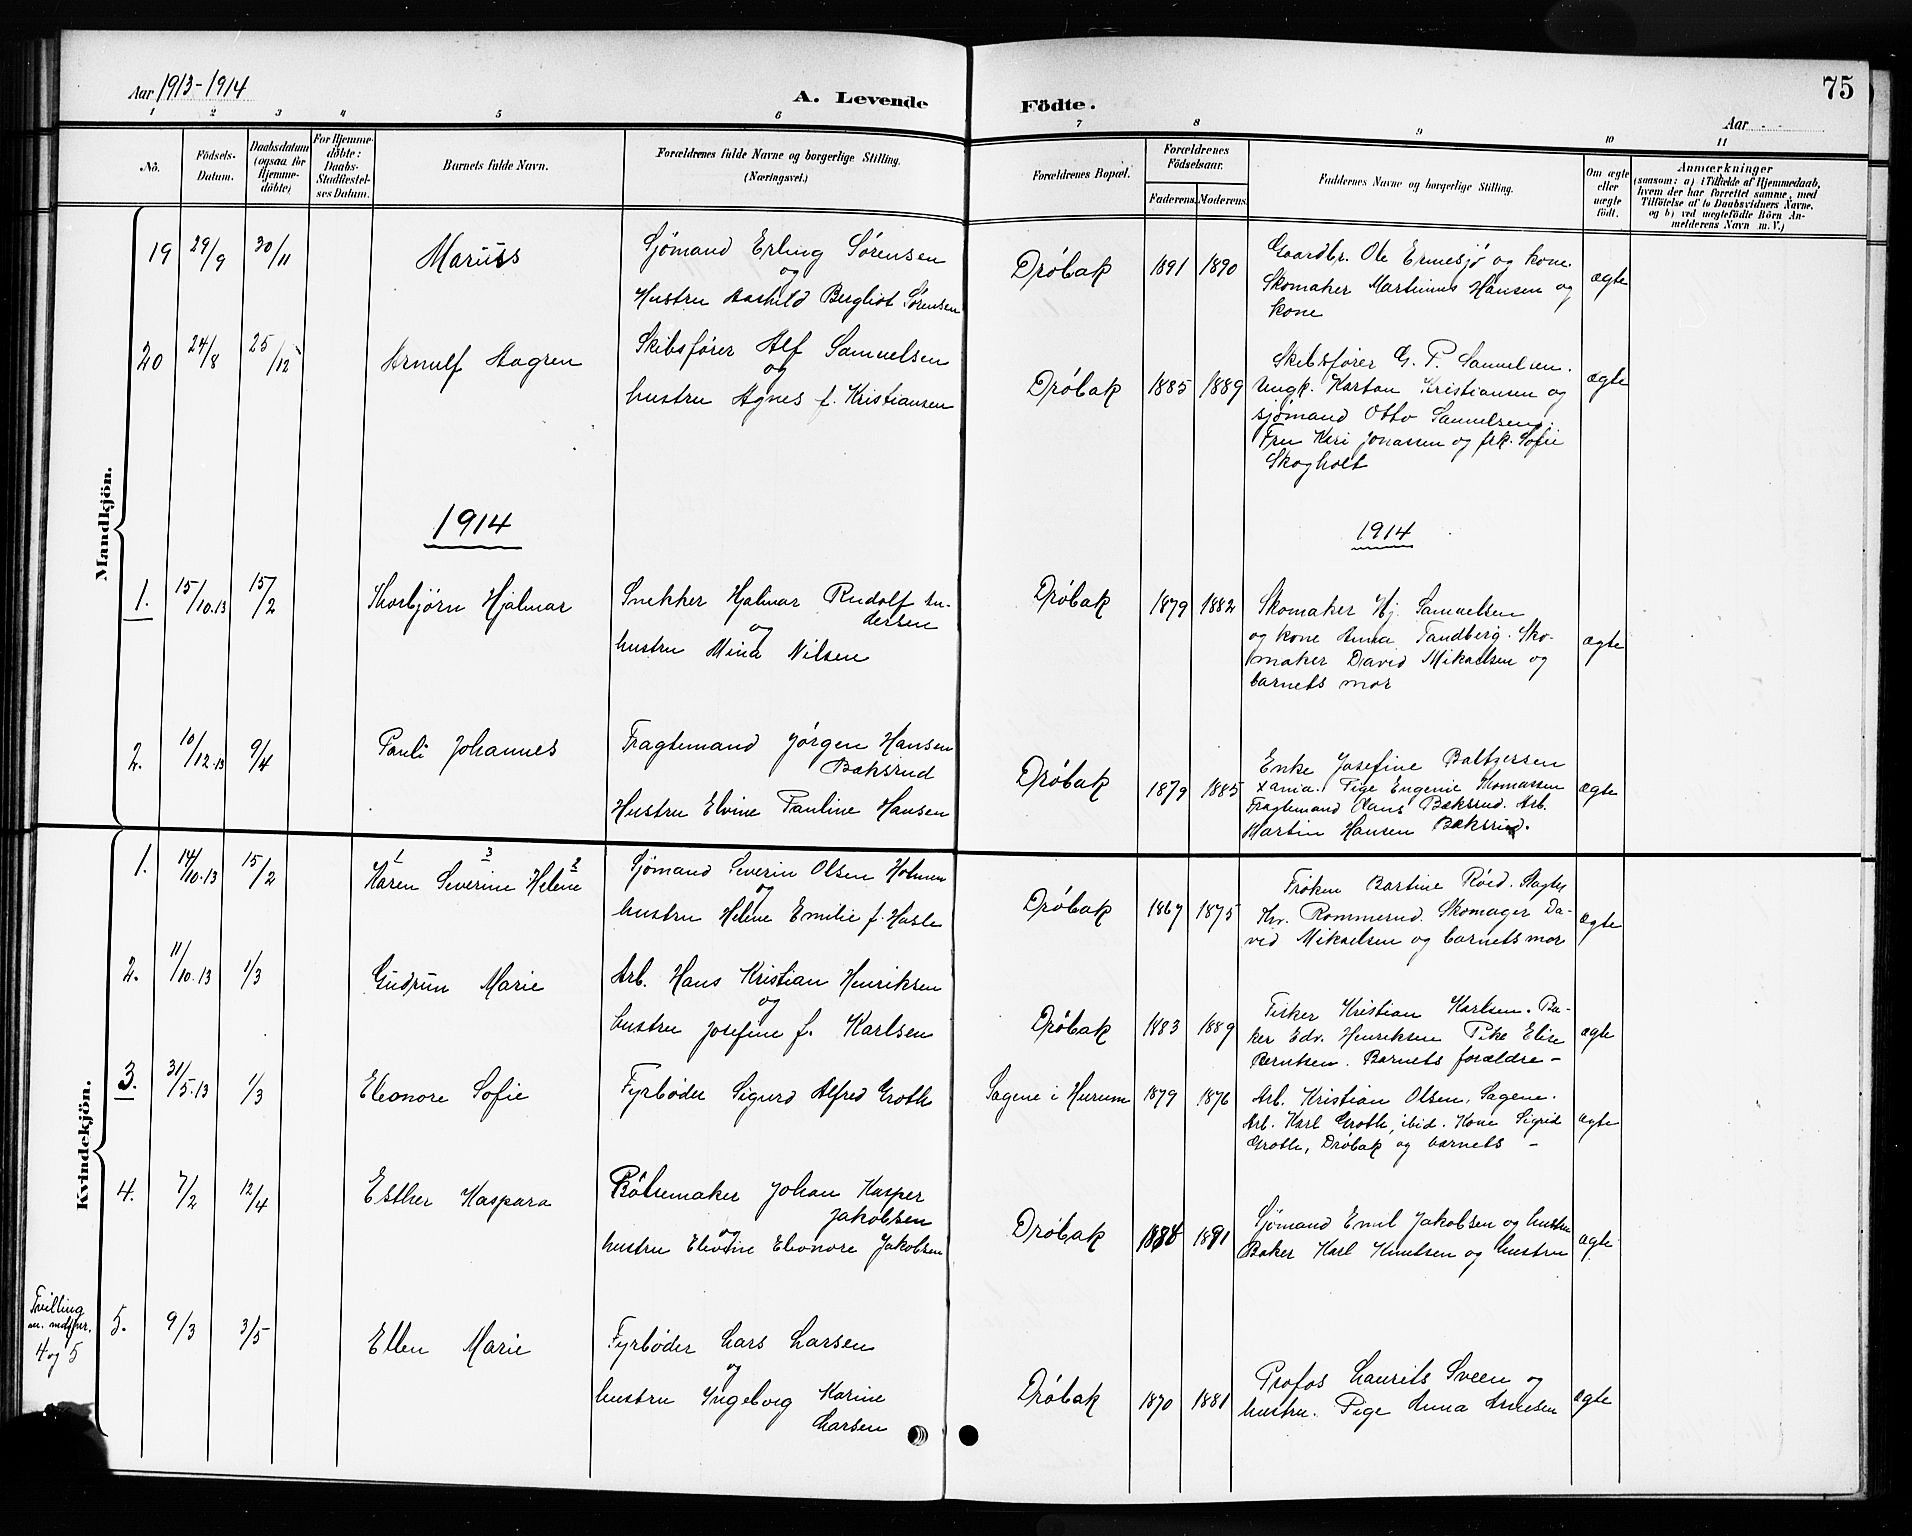 Aar 1913-1914
A. Levende Födte.
75
Aar
1 2 3 4 5 6 7 8 9 10 11
No.
Födsels-Datum.
Daabsdatum (ogsaa for Hjemme-döbte)
For Hjemme-döbte: Daabs-Stadfæstel-ses Datum.
Barnets fulde Navn.
Forældrenes fulde Navne og borgerlige Stilling. (Næringsvei.)
Forældrenes Bopæl.
Forældrenes Födselsaar.
Faderens. Moderens.
Faddernes Navne og borgerlige Stilling.
Om ægte eller uægte födt.
Anmærkninger
(saasom: a) i Tilfælde af Hjemmedaab,
hvem der har forrettet samme, med
Tilföielse af to Daabsvidners Navne,
og b) ved uægtefödte Börn An-
melderens Navn m. V.)
Mandkjön.
19 29/9 30/11 Mariuss
Sjömand Erling Sörensen
og
Hustru Aashild Bergliot Sörensen
Dröbak 1891 1890
Gaardbr. Ole Ermesjö og kone.
Skomaker Martinius Hansen og
kone
ægte
20 24/8 25/12 Arnulf Aagren
Skibsförer Alf Samuelsen
og
hustru Agnes f. Kristiansen
Dröbak 1885 1889
Skibsförer G. P. Samuelsen.
Ungk. Karton Kristiansen og
sjömand Otto Samuelsen.
Fru Kari Jonassen og frk. Sofie
Skogholt
ægte
1914
1914
1. 15/10.13 15/2 Thorbjörn Hjalmar
Snekker Hjalmar Rudolf An-
dersen
og
hustru Mina Nilsen
Dröbak 1879 1882
Skomaker Hj. Samuelsen
og kone Anna Tandberg. Sko-
maker David Mikaelsen og
barnets mor
ægte
2. 10/12.13 9/4 Pauli Johannes
Fragtemand Jörgen Hansen
Bæksrud
Hustru Elvine Pauline Hansen
Dröbak 1879 1885
Enke Josefine Baltzersen
Xania. Pige Eugenie Thomassen
Fragtemand Claus Bæksrud. Arb.
Martin Hansen Bæksrud.
ægte
Kvindekjön.
1. 14/10.13 15/2
1 3 2
Karen Severine Helene
Sjömand Severin Olsen Holmen
og
hustru Helene Emilie f. Hasle
Dröbak 1867 1875
Fröken Bartine Röed. Slagter
Thv. Rommerud. Skomager Da-
vid Mikaelsen og barnets mor
ægte
2. 11/10.13 1/3 Gudrun Marie
Arb. Hans Kristian Henriksen
og
hustru Josefine f. Karlsen
Dröbak 1883 1889
Fisker Kristian Karlsen. Ba-
ker Edv. Henriksen Pike Elise
Berntsen. Barnets forældre –
ægte
3. 31/5.13 1/3 Eleonore Sofie
Fyrböder Sigurd Alfred Groth
Sagene i Hurum 1879 1876
Arb. Kristian Olsen, Sagene.
Arb. Karl Groth, ibid. Kone Sigrid
Groth, Dröbak og barnets –
ægte
4. 7/2 12/4 Esther Kaspara
Pölsemaker Johan Kasper
Jakobsen
og
hustru Elevine Eleonore Jakobsen
Dröbak 1888 1891
Sjömand Emil Jakobsen og hustru
Baker Karl Knutsen og hustru
ægte
Tvilling
4 og 5
5. 9/3 3/5 Ellen Marie
Fyrböder Lars Larsen
og
hustru Ingeborg Karine
Larsen
Dröbak 1870 1881
Profos Laurits Sveen og
hustru. Pige Anna Arnesen
ægte